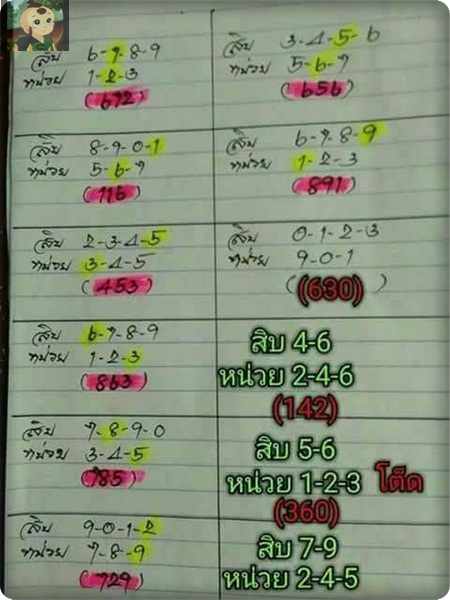 สิบ 6-7-8-9
หน่วย 1-2-3
(672)
สิบ 8-9-0-1
หน่วย 5-6-7
(716)
สิบ 2-3-4-5
หน่วย 3-4-5
(453)
สิบ 6-7-8-9
หน่วย 1-2-3
(863)
สิบ 7-8-9-0
หน่วย 3-4-5
(785)
สิบ 9-0-1-2
หน่วย 7-8-9
(729)
สิบ 3-4-5-6
หน่วย 5-6-7
(656)
สิบ 6-7-8-9
หน่วย 1-2-3
(891)
สิบ 0-1-2-3
หน่วย 9-0-1
(630)
สิบ 4-6
หน่วย 2-4-6
(142)
สิบ 5-6
หน่วย 1-2-3 โต็ด
(360)
สิบ 7-9
หน่วย 2-4-5